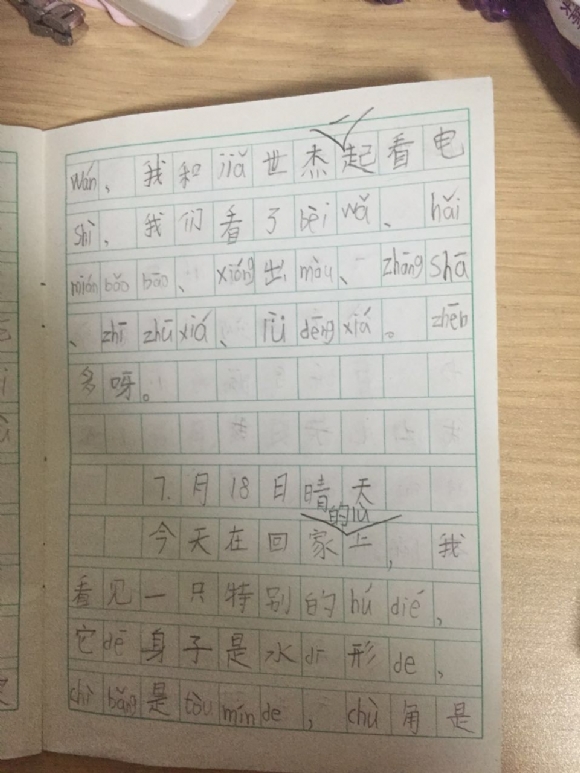 wán、我和jiǎ世杰一起看电
shì、我们看了bèi wǎ、hǎi
mián bǎo bāo、xióng出mòu、zhāng shā
、zhī zhū xiá、lǜ dēng xiá。zhēn
多呀。
7.月18日晴天
今天在回家的lù上,我
看见一只特别的hú dié,
它dē身子是水dī形de,
chì bǎng是tòu míng de,chù角是